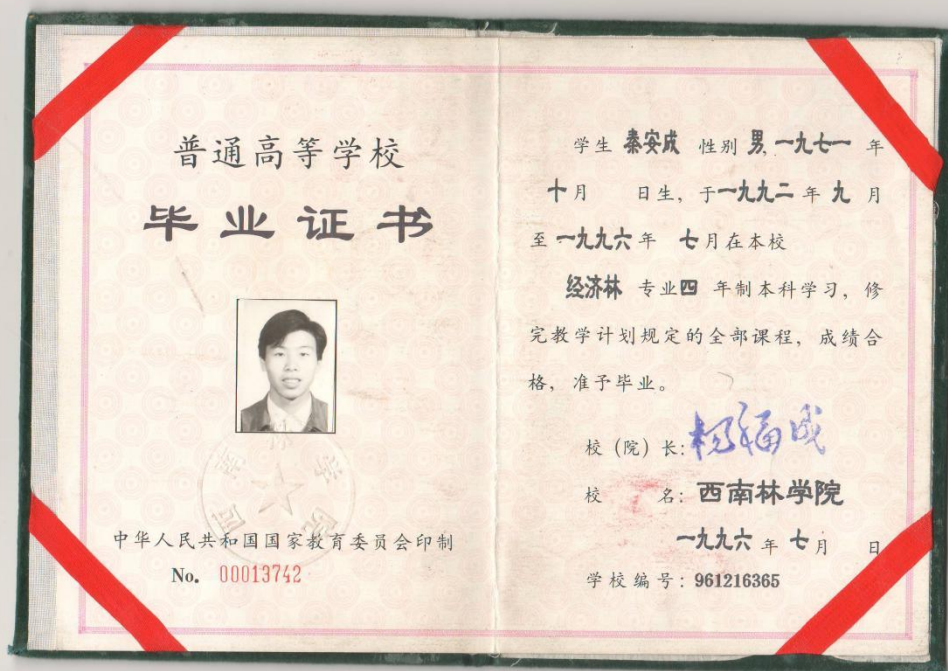 普通高等学校
毕业证书
中华人民共和国国家教育委员会印制
No. 00013742
学生 秦安成 性别 男,一九七一 年
十月 日生，于一九九二年九月
至一九九六年 七月在本校
经济林 专业四 年制本科学习，修
完教学计划规定的全部课程，成绩合
格，准予毕业。
校（院）长：杨福成
校 名：西南林学院
一九九六年七月 日
学校编号：961216365